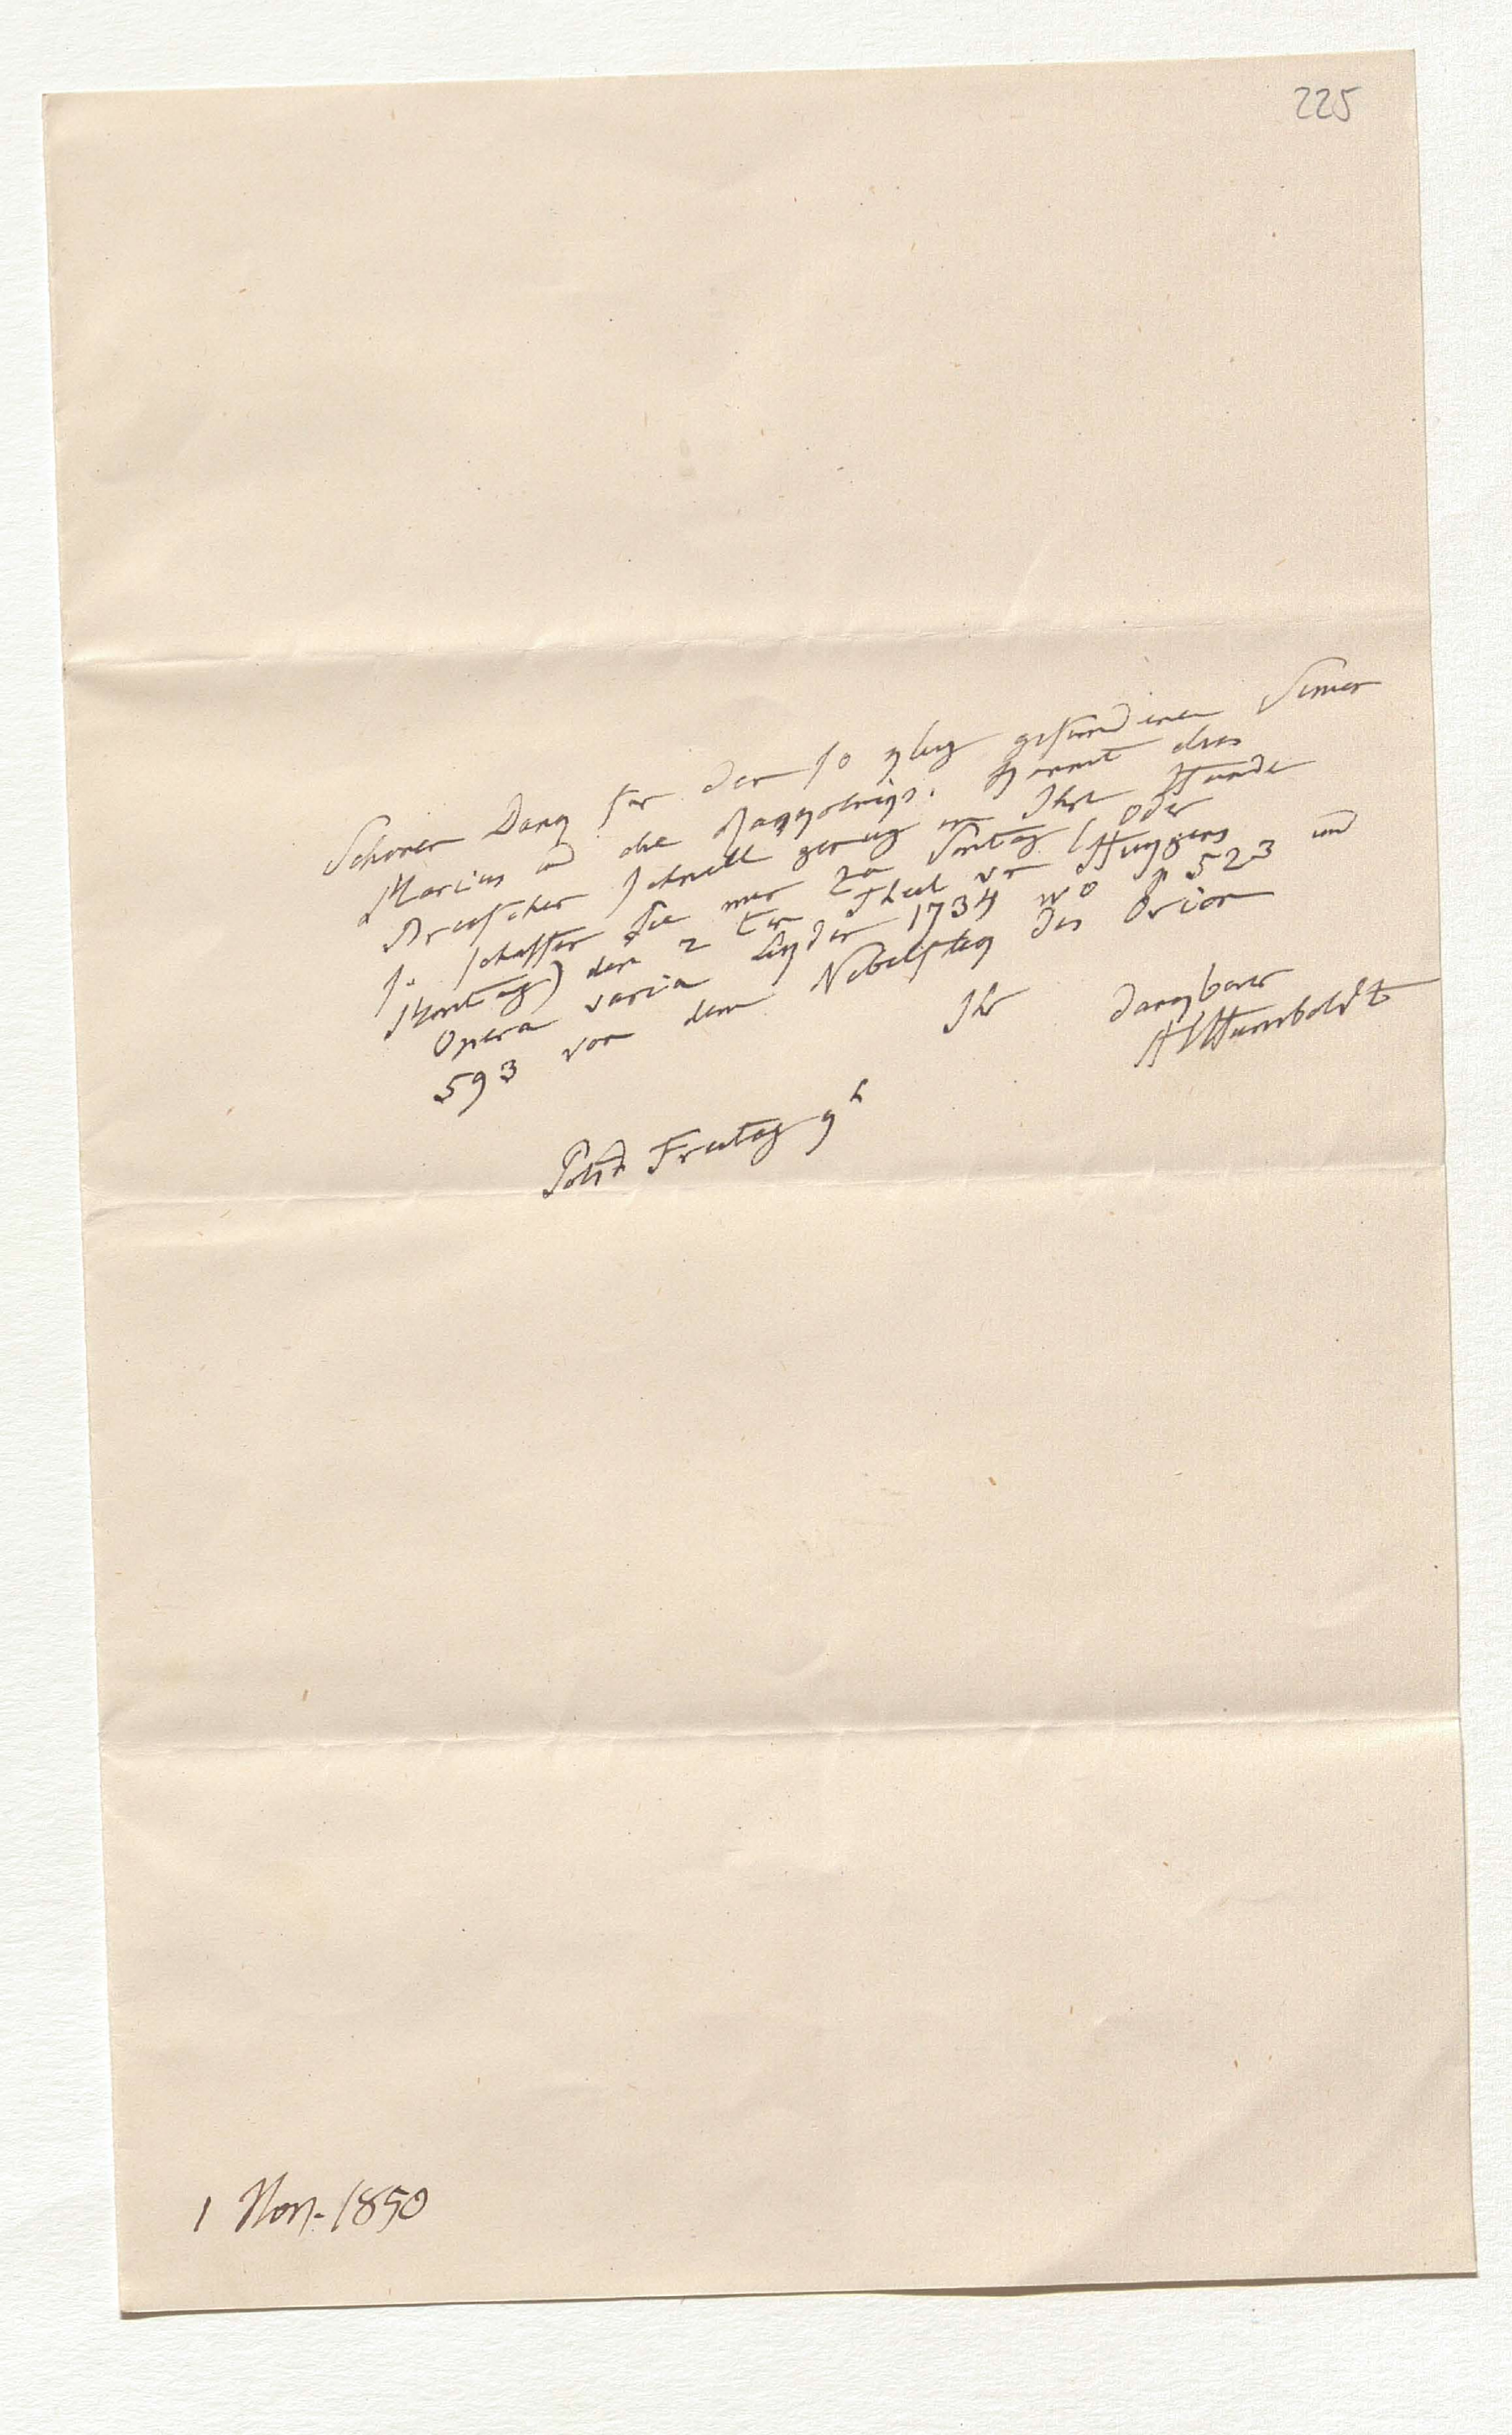 225
Schönen Dank für den so klug gefundenen Simon
Marius u die Kommt dies
Briefchen schnell genug in Ihre Hände
so schaffen Sie mir zu Sontag (oder
Montag) den 2ten Theil von Huygens
Opera varia Leyden 1734 wo p 523 und
593 von dem Nebelfleck des Orion
Ihr dankbarer
AvHumboldt
Potsd Freitag 9h
1 Nov. 1850